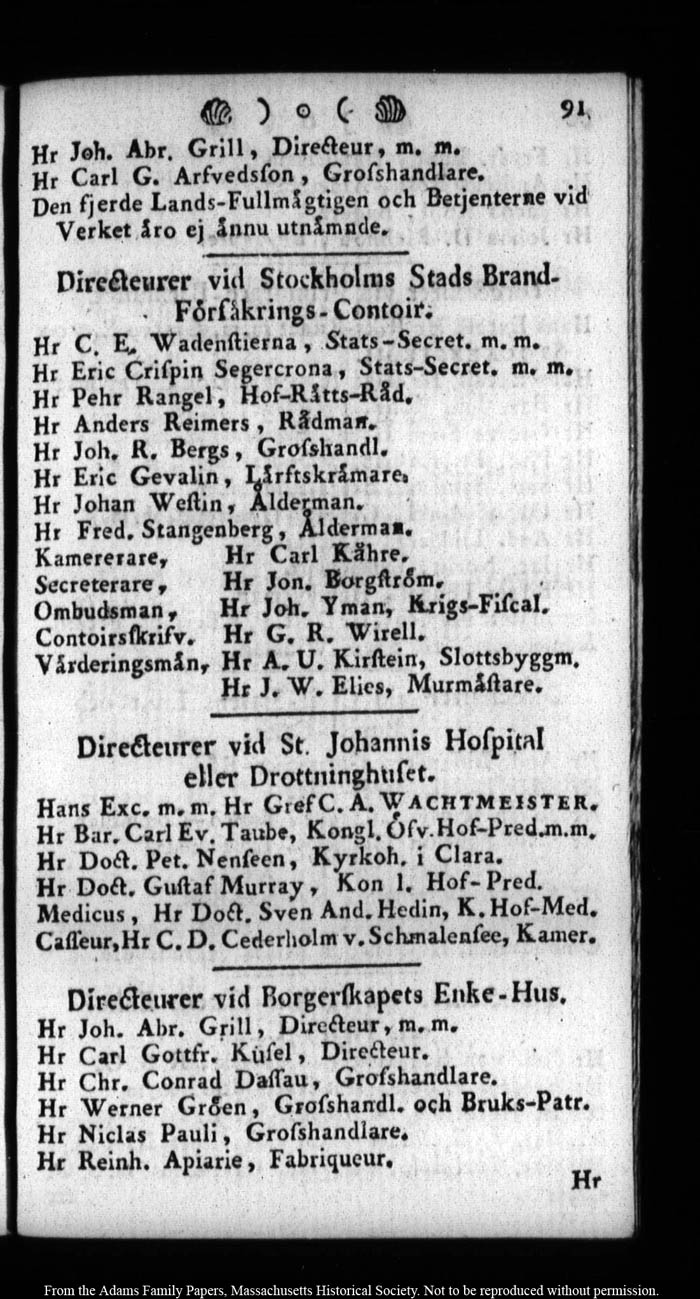 ) o ( 91
Hr Joh. Abr. Grill, Directeur, m. m.
Hr Carl G. Arfvedsſon, Groſshandlare.
Den fjerde Lands-Fullmågtigen och Betjenterne vid
Verket åro ej ånnu utnåmnde.
Directeurer vid Stockholms Stads Brand-
Fôrſåkrings-Contoir.
Hr C. E. Wadenſtierna, Stats-Secret. m. m.
Hr Eric Criſpin Segercrona, Stats-Secret. m. m.
Hr Pehr Rangel, Hof-Råtts-Råd.
Hr Anders Reimers, Rådman.
Hr Joh. R. Bergs, Groſshandl.
Hr Eric Gevalin, Lårftskråmare.
Hr Johan Weſtin, Ålderman.
Hr Fred. Stangenberg, Ålderman.
Kamererare, Hr Carl Kåhre.
Secreterare, Hr Jon. Borgſtrôm.
Ombudsman, Hr Joh. Yman, Krigs-Fiſcal.
Contoirsſkrifv. Hr G. R. Wirell.
Vårderingsmån, Hr A. U. Kirſtein, Slottsbyggm.
Hr J. W. Elies, Murmåſtare.
Directeurer vid St. Johannis Hoſpital
eller Drottninghuſet.
Hans Exc. m. m. Hr Gref C. A. WACHTMEISTER.
Hr Bar. Carl Ev. Taube, Kongl. Öfv. Hof-Pred. m. m.
Hr Doct. Pet. Nenſeen, Kyrkoh. i Clara.
Hr Doct. Guſtaf Murray, Kon l. Hof-Pred.
Medicus, Hr Doct. Sven And. Hedin, K. Hof-Med.
Caſſeur, Hr C. D. Cederholm v. Schmalenſee, Kamer.
Directeurer vid Borgerſkapets Enke-Hus.
Hr Joh. Abr. Grill, Directeur, m. m.
Hr Carl Gottfr. Küſel, Directeur.
Hr Chr. Conrad Daſſau, Groſshandlare.
Hr Werner Grôen, Groſshandl. och Bruks-Patr.
Hr Niclas Pauli, Groſshandlare.
Hr Reinh. Apiarie, Fabriqueur.
Hr
From the Adams Family Papers, Massachusetts Historical Society. Not to be reproduced without permission.